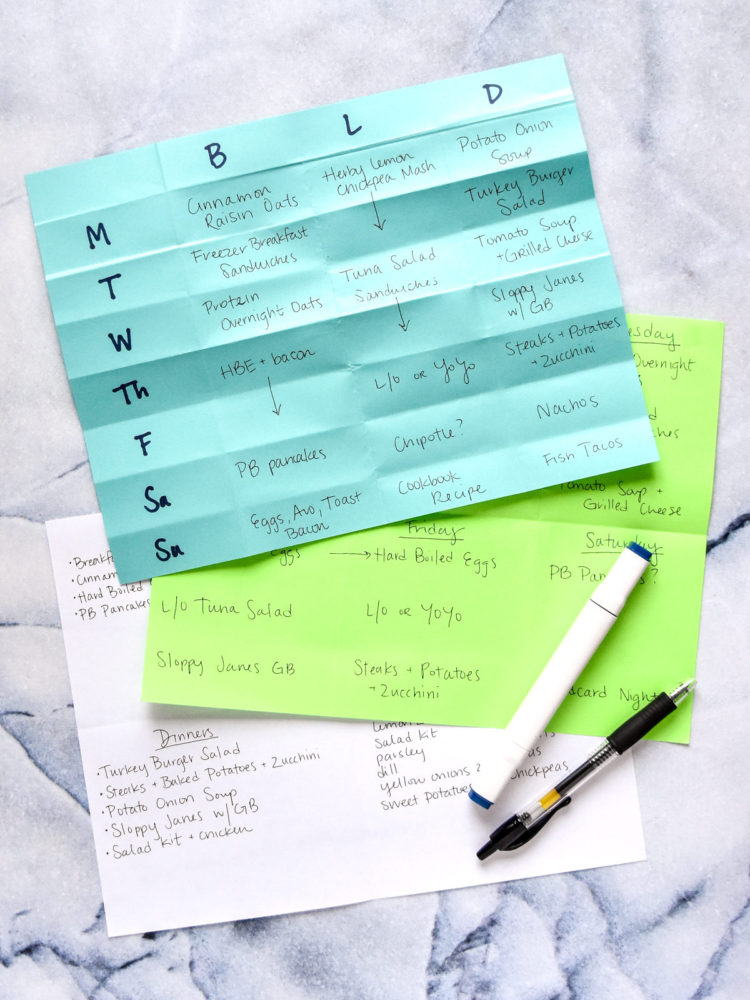 B L D
M
Cinnamon
Raisin Oats
Herby Lemon
Chickpea Mash
Potato Onion
Soup
T
Freezer Breakfast
Sandwiches
Turkey Burger
Salad
W
Protein
Overnight Oats
Tuna Salad
Sandwiches
Tomato Soup
+ Grilled Cheese
Th
HBE + bacon
Sloppy Janes
w/ GB
F
L/o or YoYo
Steaks + Potatoes
+ Zucchini
Sa
PB pancakes
Chipotle?
Nachos
Su
Eggs, Avo, Toast
Bacon
Cookbook
Recipe
Fish Tacos
Overnight
Tomato Soup +
Grilled Cheese
Eggs
L/o Tuna Salad
Sloppy Janes GB
Friday
Hard Boiled Eggs
L/o or YoYo
Steaks + Potatoes
+ Zucchini
Saturday
PB
Night
Hard Boiled
PB Pancakes
Dinners
Turkey Burger Salad
Steaks + Baked Potatoes + Zucchini
Potato Onion Soup
Sloppy Janes w/ GB
Salad Kit + chicken
Salad Kit
parsley
dill
yellow onions 2
sweet potatoes
Chickpeas